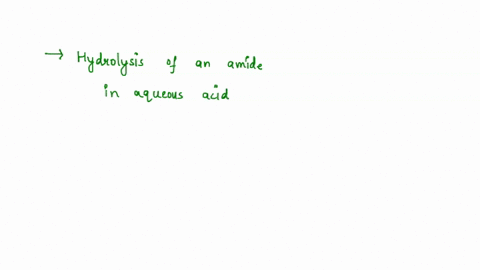 → Hydrolysis of an amide
in aqueous acid